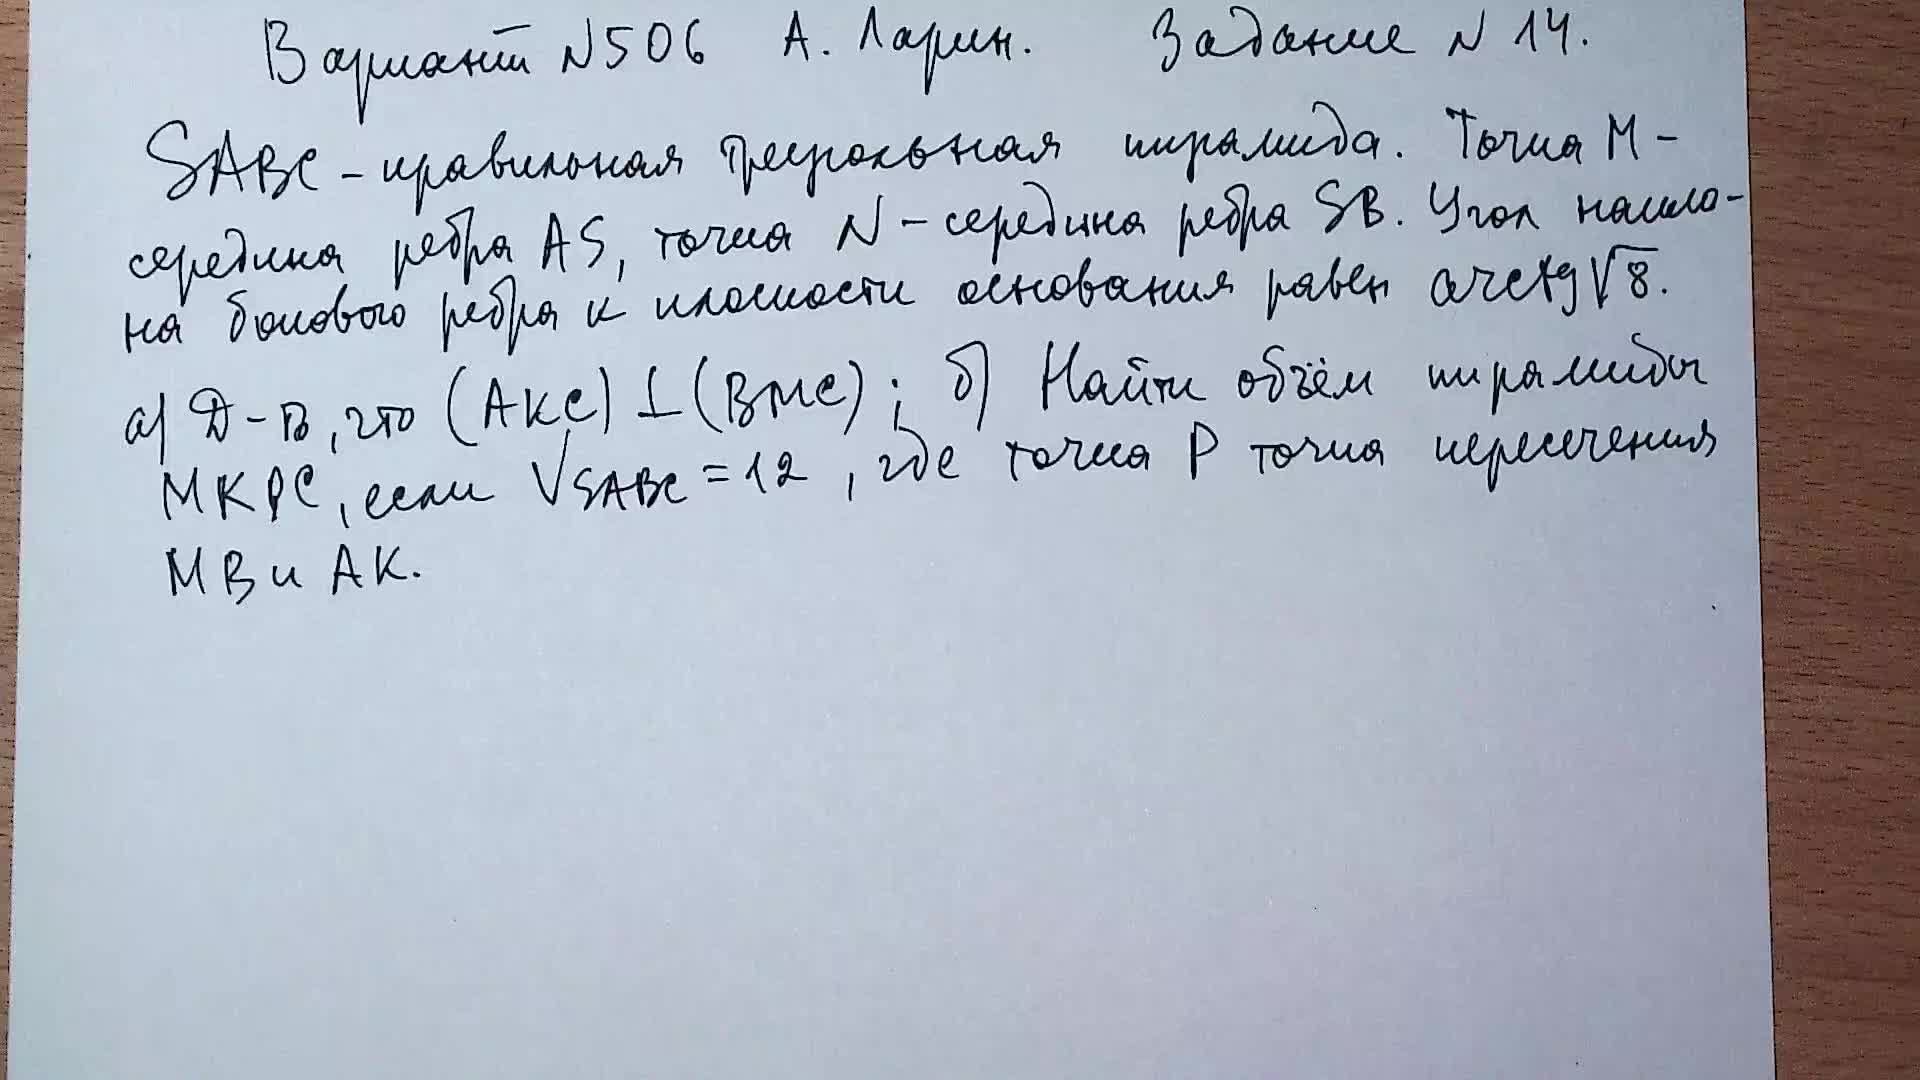 Вариант N506 А. Ларин. Задание N 14.
SABC – правильная треугольная пирамида. Точка М –
середина ребра AS, точка N – середина ребра SB. Угол накло-
на бокового ребра к плоскости основания равен arctg√8.
а) Д-ть, что (АКС) ⊥ (ВМС); б) Найти объём пирамиды
МКРС, если V_SABC = 12, где точка Р точка пересечения
МВ и АК.